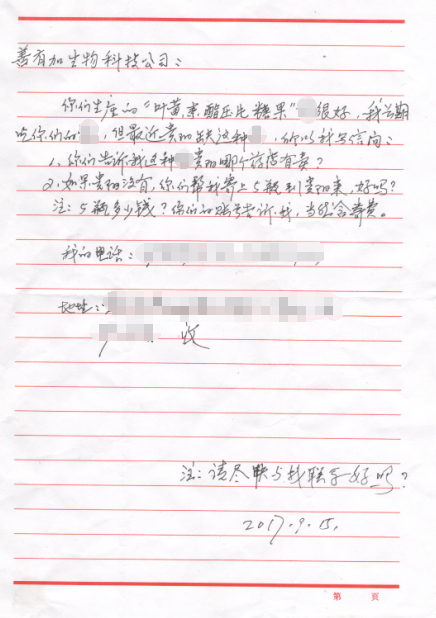 善有加生物科技公司：
你们生产的“叶黄素酯压片糖果”很好，我长期
吃你们的，但最近贵阳缺这种，所以我写信问：
1、你们告诉我这种贵阳哪个药店有卖？
2、如果贵阳没有，你们帮我寄上5瓶到贵阳来，好吗？
注：5瓶多少钱？你们的账号告诉我，当然含寄费。
我的电话：
地址：
收
注：请尽快与我联系好吗？
2017.9.15.
第 頁